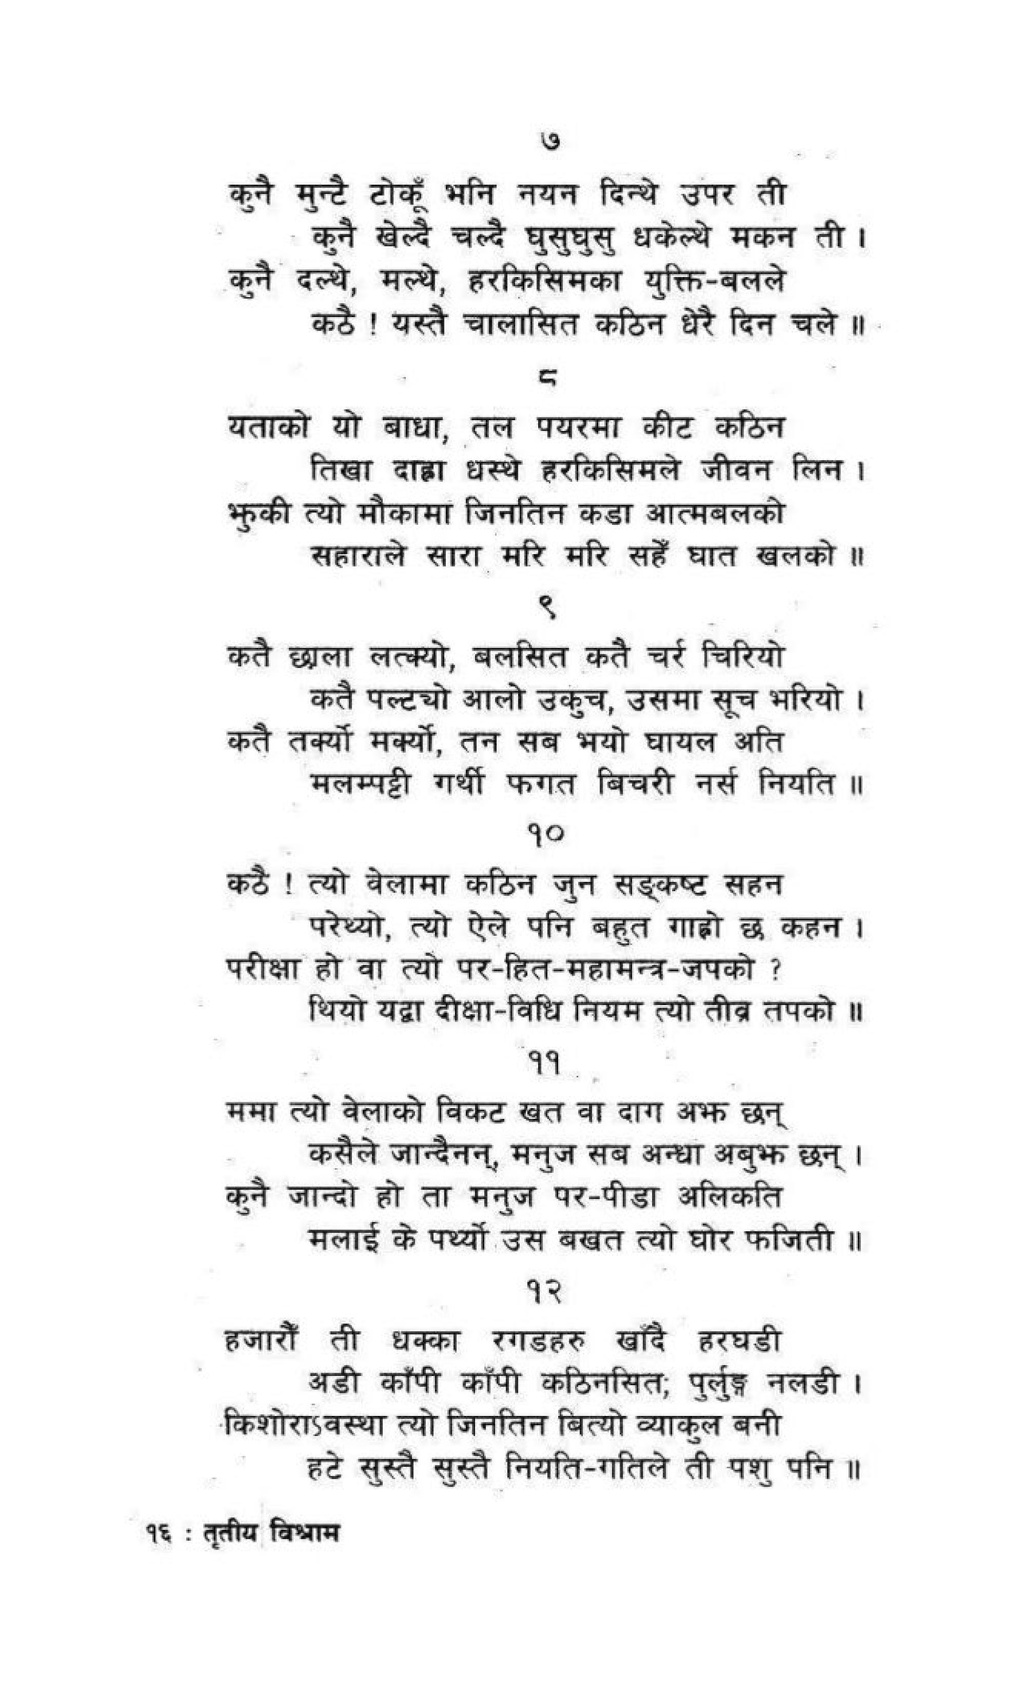 ७
कुनै मुन्टै टोकूँ भनि नयन दिन्थे उपर ती
कुनै खेल्दै चल्दै घुसुघुसु धकेल्थे मकन ती ।
कुनै दल्थे, मल्थे, हरकिसिमका युक्ति-बलले
कठै ! यस्तै चालासित कठिन धेरै दिन चले ॥
८
यताको यो बाधा, तल पयरमा कीट कठिन
तिखा दाह्रा धस्थे हरकिसिमले जीवन लिन ।
झुकी त्यो मौकामा जिनतिन कडा आत्मबलको
सहाराले सारा मरि मरि सहेँ घात खलको ॥
९
कतै छाला लत्क्यो, बलसित कतै चर्र चिरियो
कतै पल्ट्यो आलो उकुच, उसमा सूच भरियो ।
कतै तर्क्यो मर्क्यो, तन सब भयो घायल अति
मलम्पट्टी गर्थी फगत बिचरी नर्स नियति ॥
१०
कठै ! त्यो वेलामा कठिन जुन सङ्कष्ट सहन
परेथ्यो, त्यो ऐले पनि बहुत गाह्रो छ कहन ।
परीक्षा हो वा त्यो पर-हित-महामन्त्र-जपको ?
थियो यद्वा दीक्षा-विधि नियम त्यो तीव्र तपको ॥
११
ममा त्यो वेलाको विकट खत वा दाग अझ छन्
कसैले जान्दैनन्, मनुज सब अन्धा अबुझ छन् ।
कुनै जान्दो हो ता मनुज पर-पीडा अलिकति
मलाई के पर्थ्यो उस बखत त्यो घोर फजिती ॥
१२
हजारौँ ती धक्का रगडहरु खाँदै हरघडी
अडी काँपी काँपी कठिनसित; पुर्लुङ्ग नलडी ।
किशोराऽवस्था त्यो जिनतिन बित्यो व्याकुल बनी
हटे सुस्तै सुस्तै नियति-गतिले ती पशु पनि ॥
१६ : तृतीय विश्राम